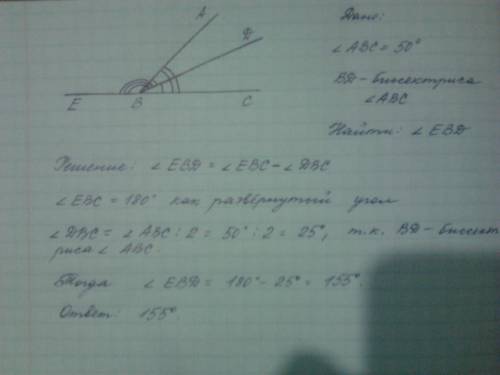 A
D
E B C
Дано:
∠ABC = 50°
BD - биссектриса
∠ABC
Найти: ∠EBD
Решение: ∠EBD = ∠EBC - ∠DBC
∠EBC = 180° как развёрнутый угол
∠DBC = ∠ABC : 2 = 50° : 2 = 25°, т.к. BD - биссект
риса ∠ABC.
Тогда ∠EBD = 180° - 25° = 155°.
Ответ: 155°.